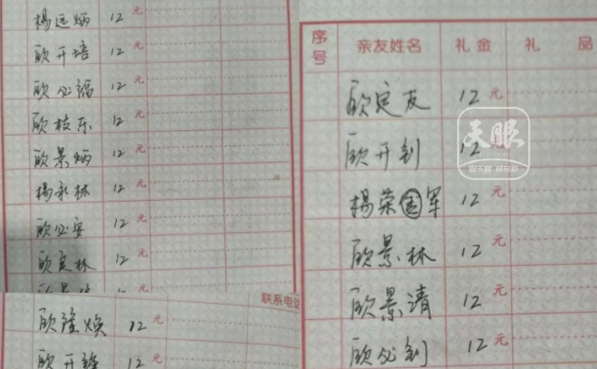 杨远炳 12元
欧开培 12元
欧必福 12元
欧枝东 12元
欧景炳 12元
杨永林 12元
欧必安 12元
欧定林 12元
12元
联系电
欧隆焕 12元
欧开锋 12元
序号 亲友姓名 礼金 礼品
欧定友 12元
欧开钊 12元
杨荣军 12元
欧景林 12元
欧景清 12元
欧必钊 12元
天眼